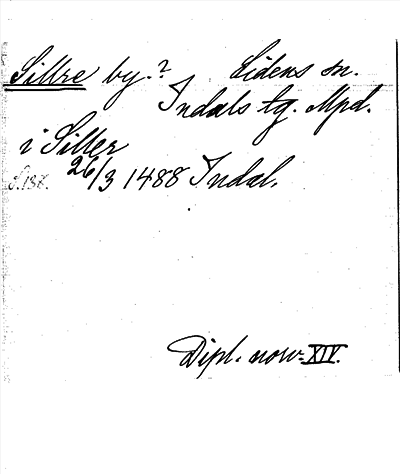 Sillre by.? Lidens sn.
Indals tg. Mpd.
i Siller
S.138. 26/3 1488 Indal.
Dipl. norv. XIV.